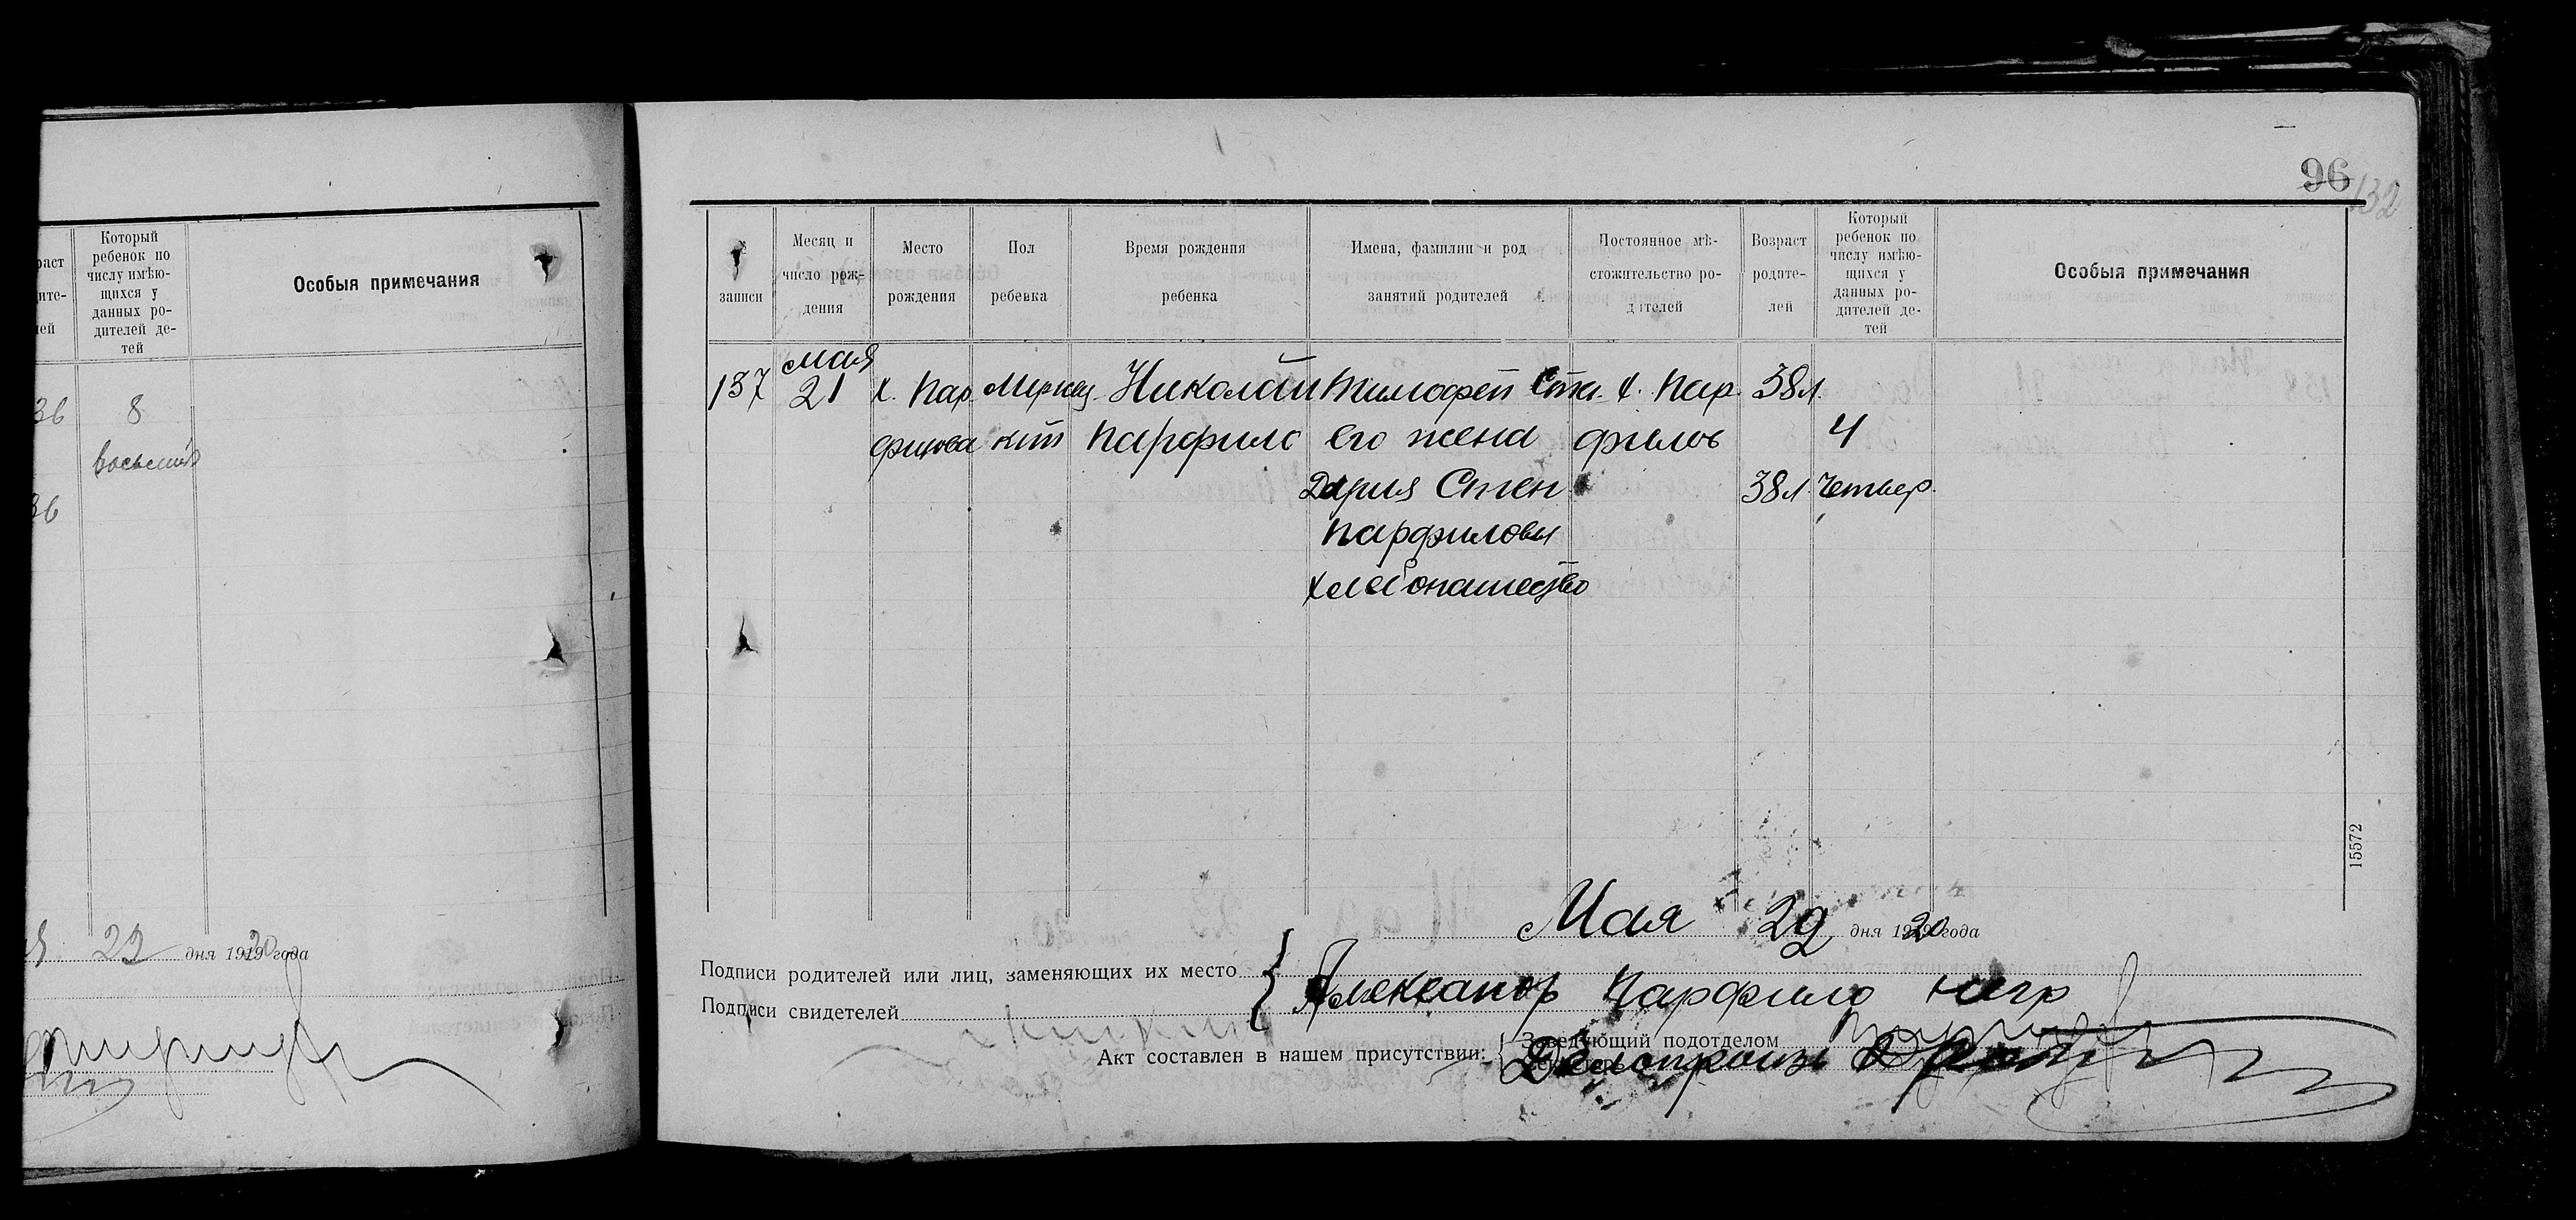 96
132
Который
ребенок по
числу имѣю-
щихся у
данных ро-
дителей де-
тей
Особыя примечания
36
8
восьмий
36
22 дня 1920 года
записи
Месяц и
число рож-
дения
Место
рождения
Пол
ребенка
Время рождения
ребенка
Имена, фамилии и род
занятий родителей
Постоянное мѣ-
стожительство ро-
дителей
Возраст
родите-
лей
Который
ребенок по
числу имѣю-
щихся у
данных ро-
дителей де-
тей
Особыя примечания
мая
137 21 х. Пар Мужеск Николай Тимофей Сте. х. Пар. 38 л.
филова кий Парфило его жена филов 4
Дария Степ 38 л. Четвер.
Парфиловы
хлебопашество
15572
Мая 29 дня 1920 года
Подписи родителей или лиц, заменяющих их место
Александр Парфило
Подписи свидетелей
Акт составлен в нашем присутствии: Заведующий подотделом
Делопроизв